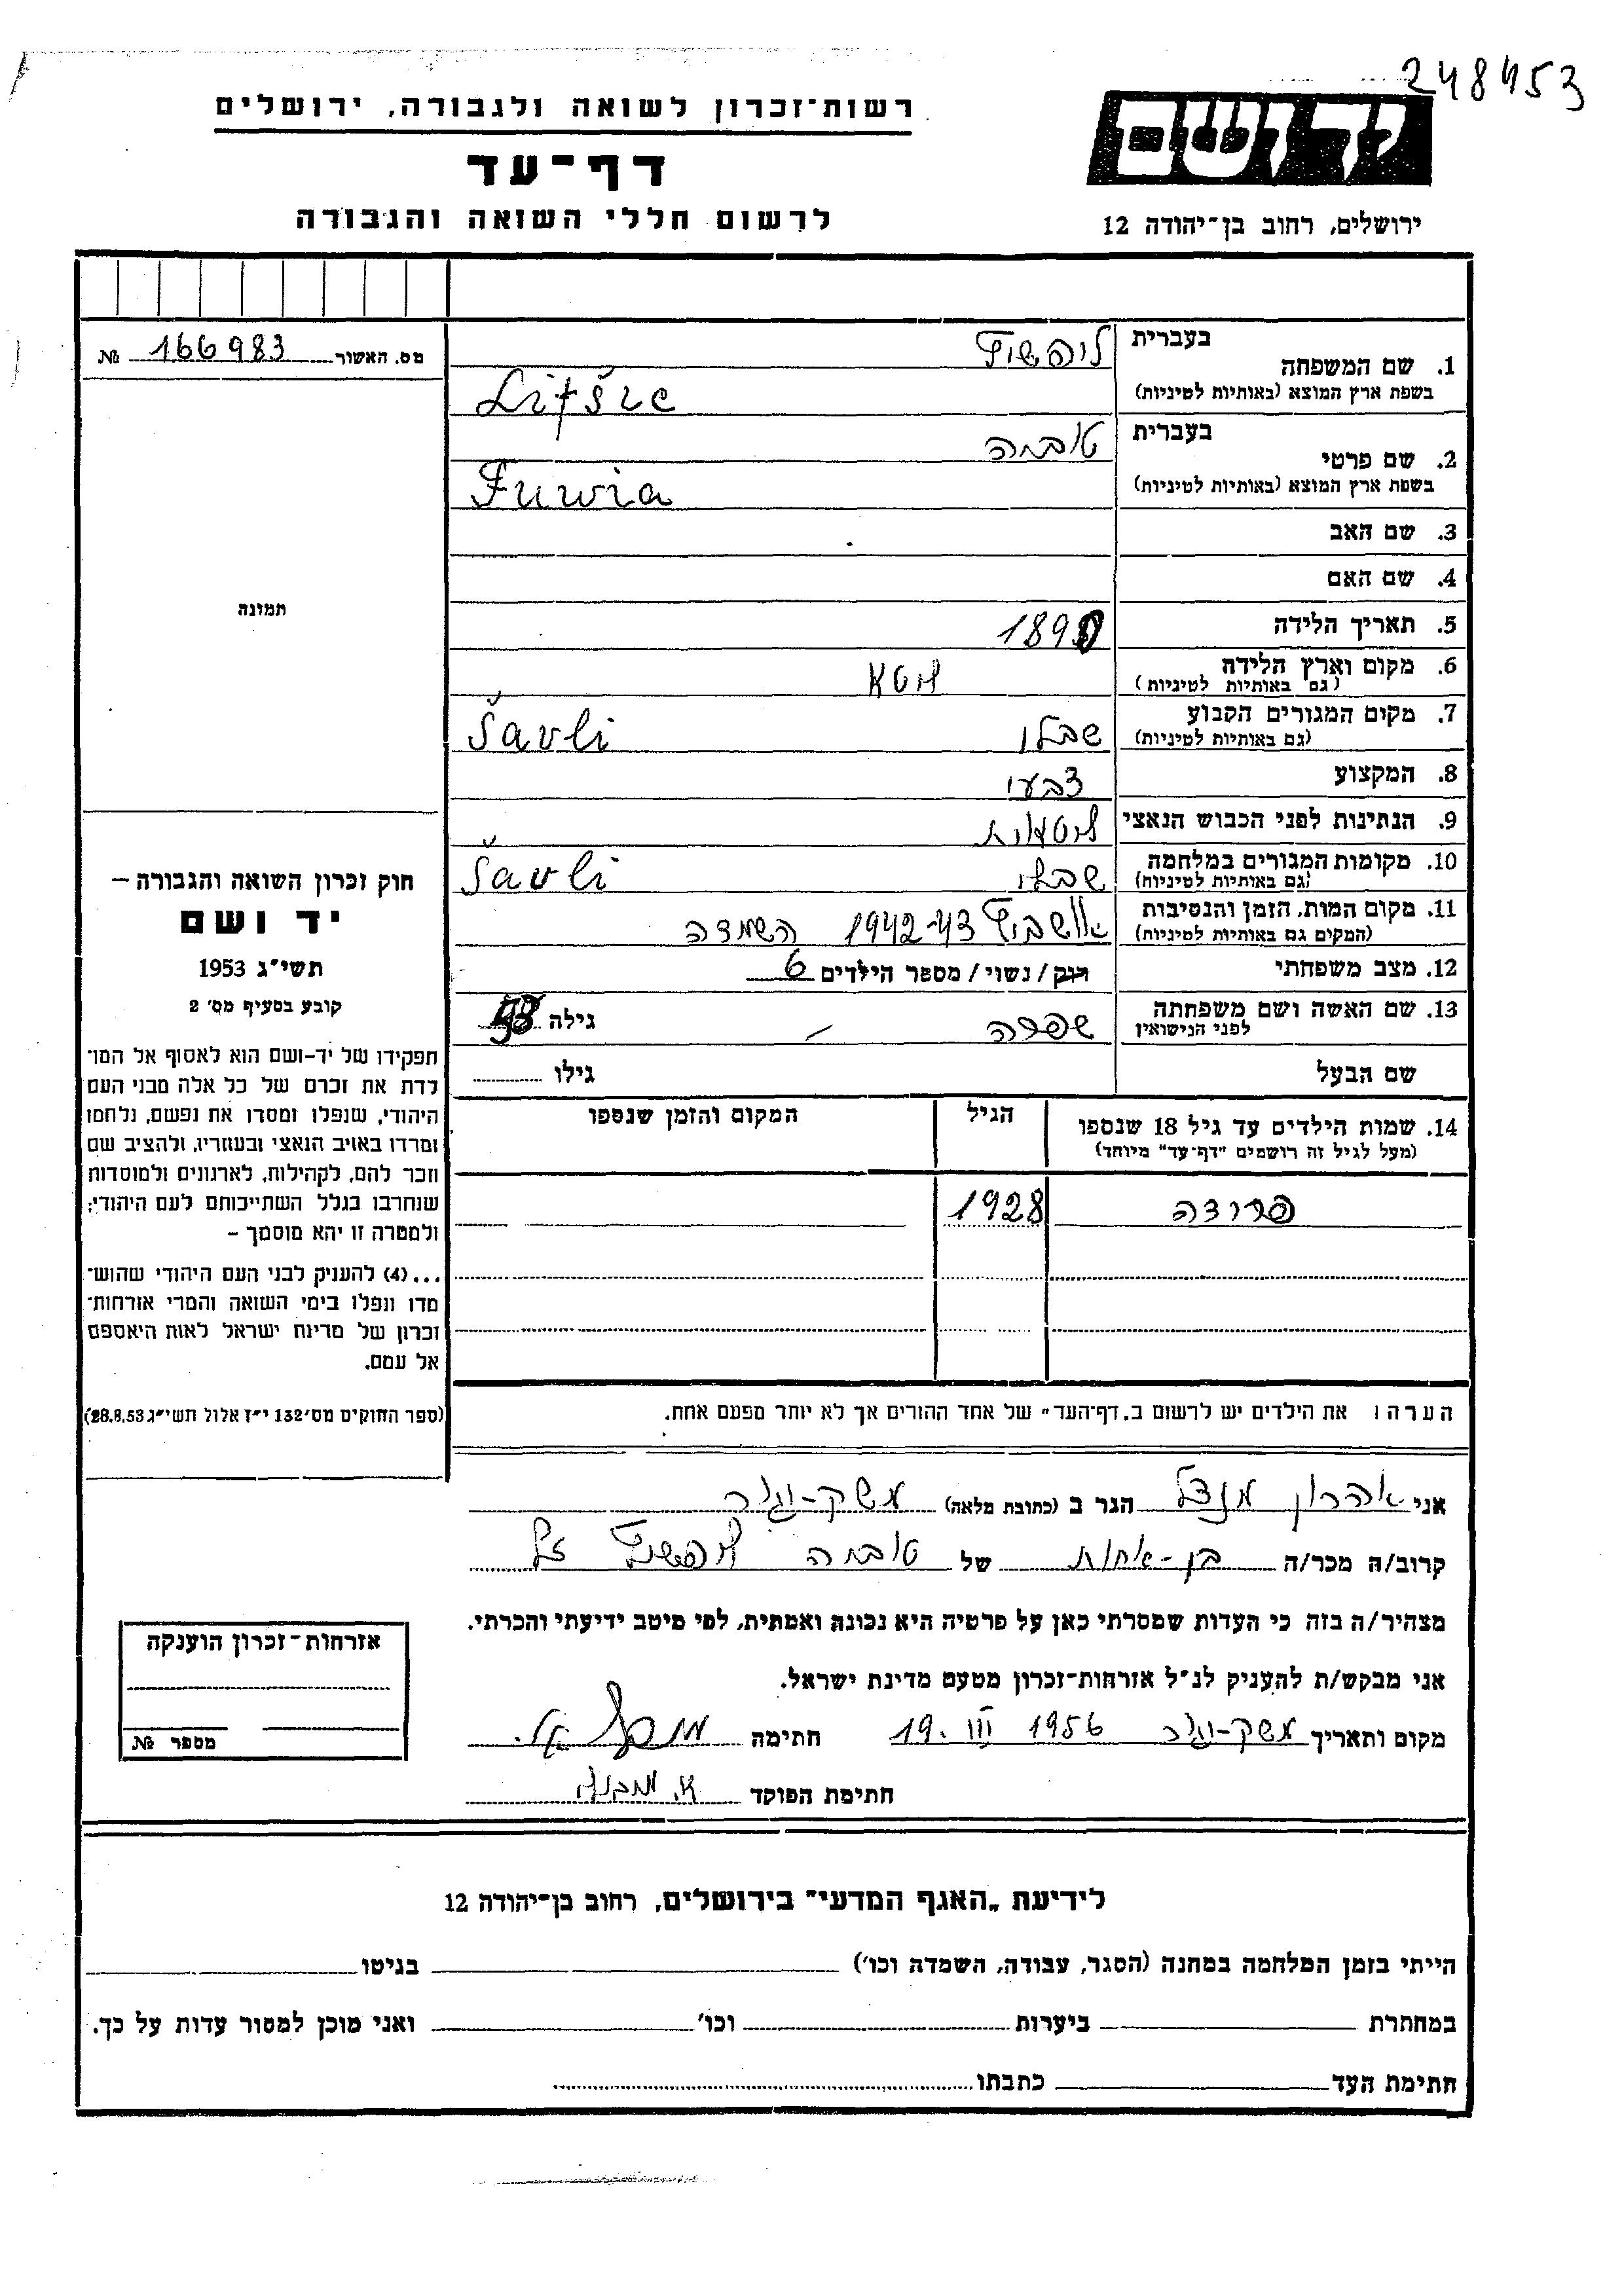 248453
יד ושם
ירושלים, רחוב בן־יהודה 12
רשות־זכרון לשואה ולגבורה, ירושלים
דף־עד
לרשום חללי השואה והגבורה
מס. האשור 166983 №
תמונה
חוק זכרון השואה והגבורה –
יד ושם
תשי״ג 1953
קובע בסעיף מס׳ 2
תפקידו של יד-ושם הוא לאסוף אל המו־
לדת את זכרם של כל אלה מבני העם
היהודי, שנפלו ומסרו את נפשם, נלחמו
ומרדו באויב הנאצי ובעוזריו, ולהציב שם
וזכר להם, לקהילות, לארגונים ולמוסדות
שנחרבו בגלל השתייכותם לעם היהודי;
ולמטרה זו יהא מוסמך –
...(4) להעניק לבני העם היהודי שהוש־
מדו ונפלו בימי השואה והמרי אזרחות־
זכרון של מדינת ישראל לאות היאספם
אל עמם.
(ספר החוקים מס׳ 132 י״ז אלול תשי״ג 28.8.53)
1. שם המשפחה בעברית ליפשיץ
בשפת ארץ המוצא (באותיות לטיניות) Lifšic
2. שם פרטי בעברית טוביה
בשפת ארץ המוצא (באותיות לטיניות)
3. שם האב
4. שם האם
5. תאריך הלידה 1890
6. מקום וארץ הלידה
(גם באותיות לטיניות)
7. מקום המגורים הקבוע שבלי Šavli
(גם באותיות לטיניות)
8. המקצוע צבעי
9. הנתינות לפני הכבוש הנאצי ליטאית
10. מקומות המגורים במלחמה שבלי Šavli
(גם באותיות לטיניות)
11. מקום המות, הזמן והנסיבות אושביץ 1942-43 השמדה
(המקום גם באותיות לטיניות)
12. מצב משפחתי רוק/נשוי/מספר הילדים 6
13. שם האשה ושם משפחתה שפרה – גילה
לפני הנישואין
שם הבעל גילו
14. שמות הילדים עד גיל 18 שנספו הגיל המקום והזמן שנספו
(מעל לגיל זה רושמים ״דף־עד״ מיוחד)
פרידה 1928
הערה: את הילדים יש לרשום ב„דף־העד״ של אחד ההורים אך לא יותר מפעם אחת.
אני אהרון מנדל הגר ב (כתובת מלאה) משק-יגור
קרוב/ה מכר/ה בן-אחות של טוביה ליפשיץ ז״ל
מצהיר/ה בזה כי העדות שמסרתי כאן על פרטיה היא נכונה ואמתית, לפי מיטב ידיעתי והכרתי.
אני מבקש/ת להעניק לנ״ל אזרחות-זכרון מטעם מדינת ישראל.
מקום ותאריך משק-יגור 19. III 1956 חתימה מנדל א.
חתימת הפוקד
אזרחות־זכרון הוענקה
מספר №
לידיעת „האגף המדעי״ בירושלים, רחוב בן־יהודה 12
הייתי בזמן המלחמה במחנה (הסגר, עבודה, השמדה וכו׳) בגיטו
במחתרת ביערות וכו׳ ואני מוכן למסור עדות על כך.
חתימת העד כתבתו